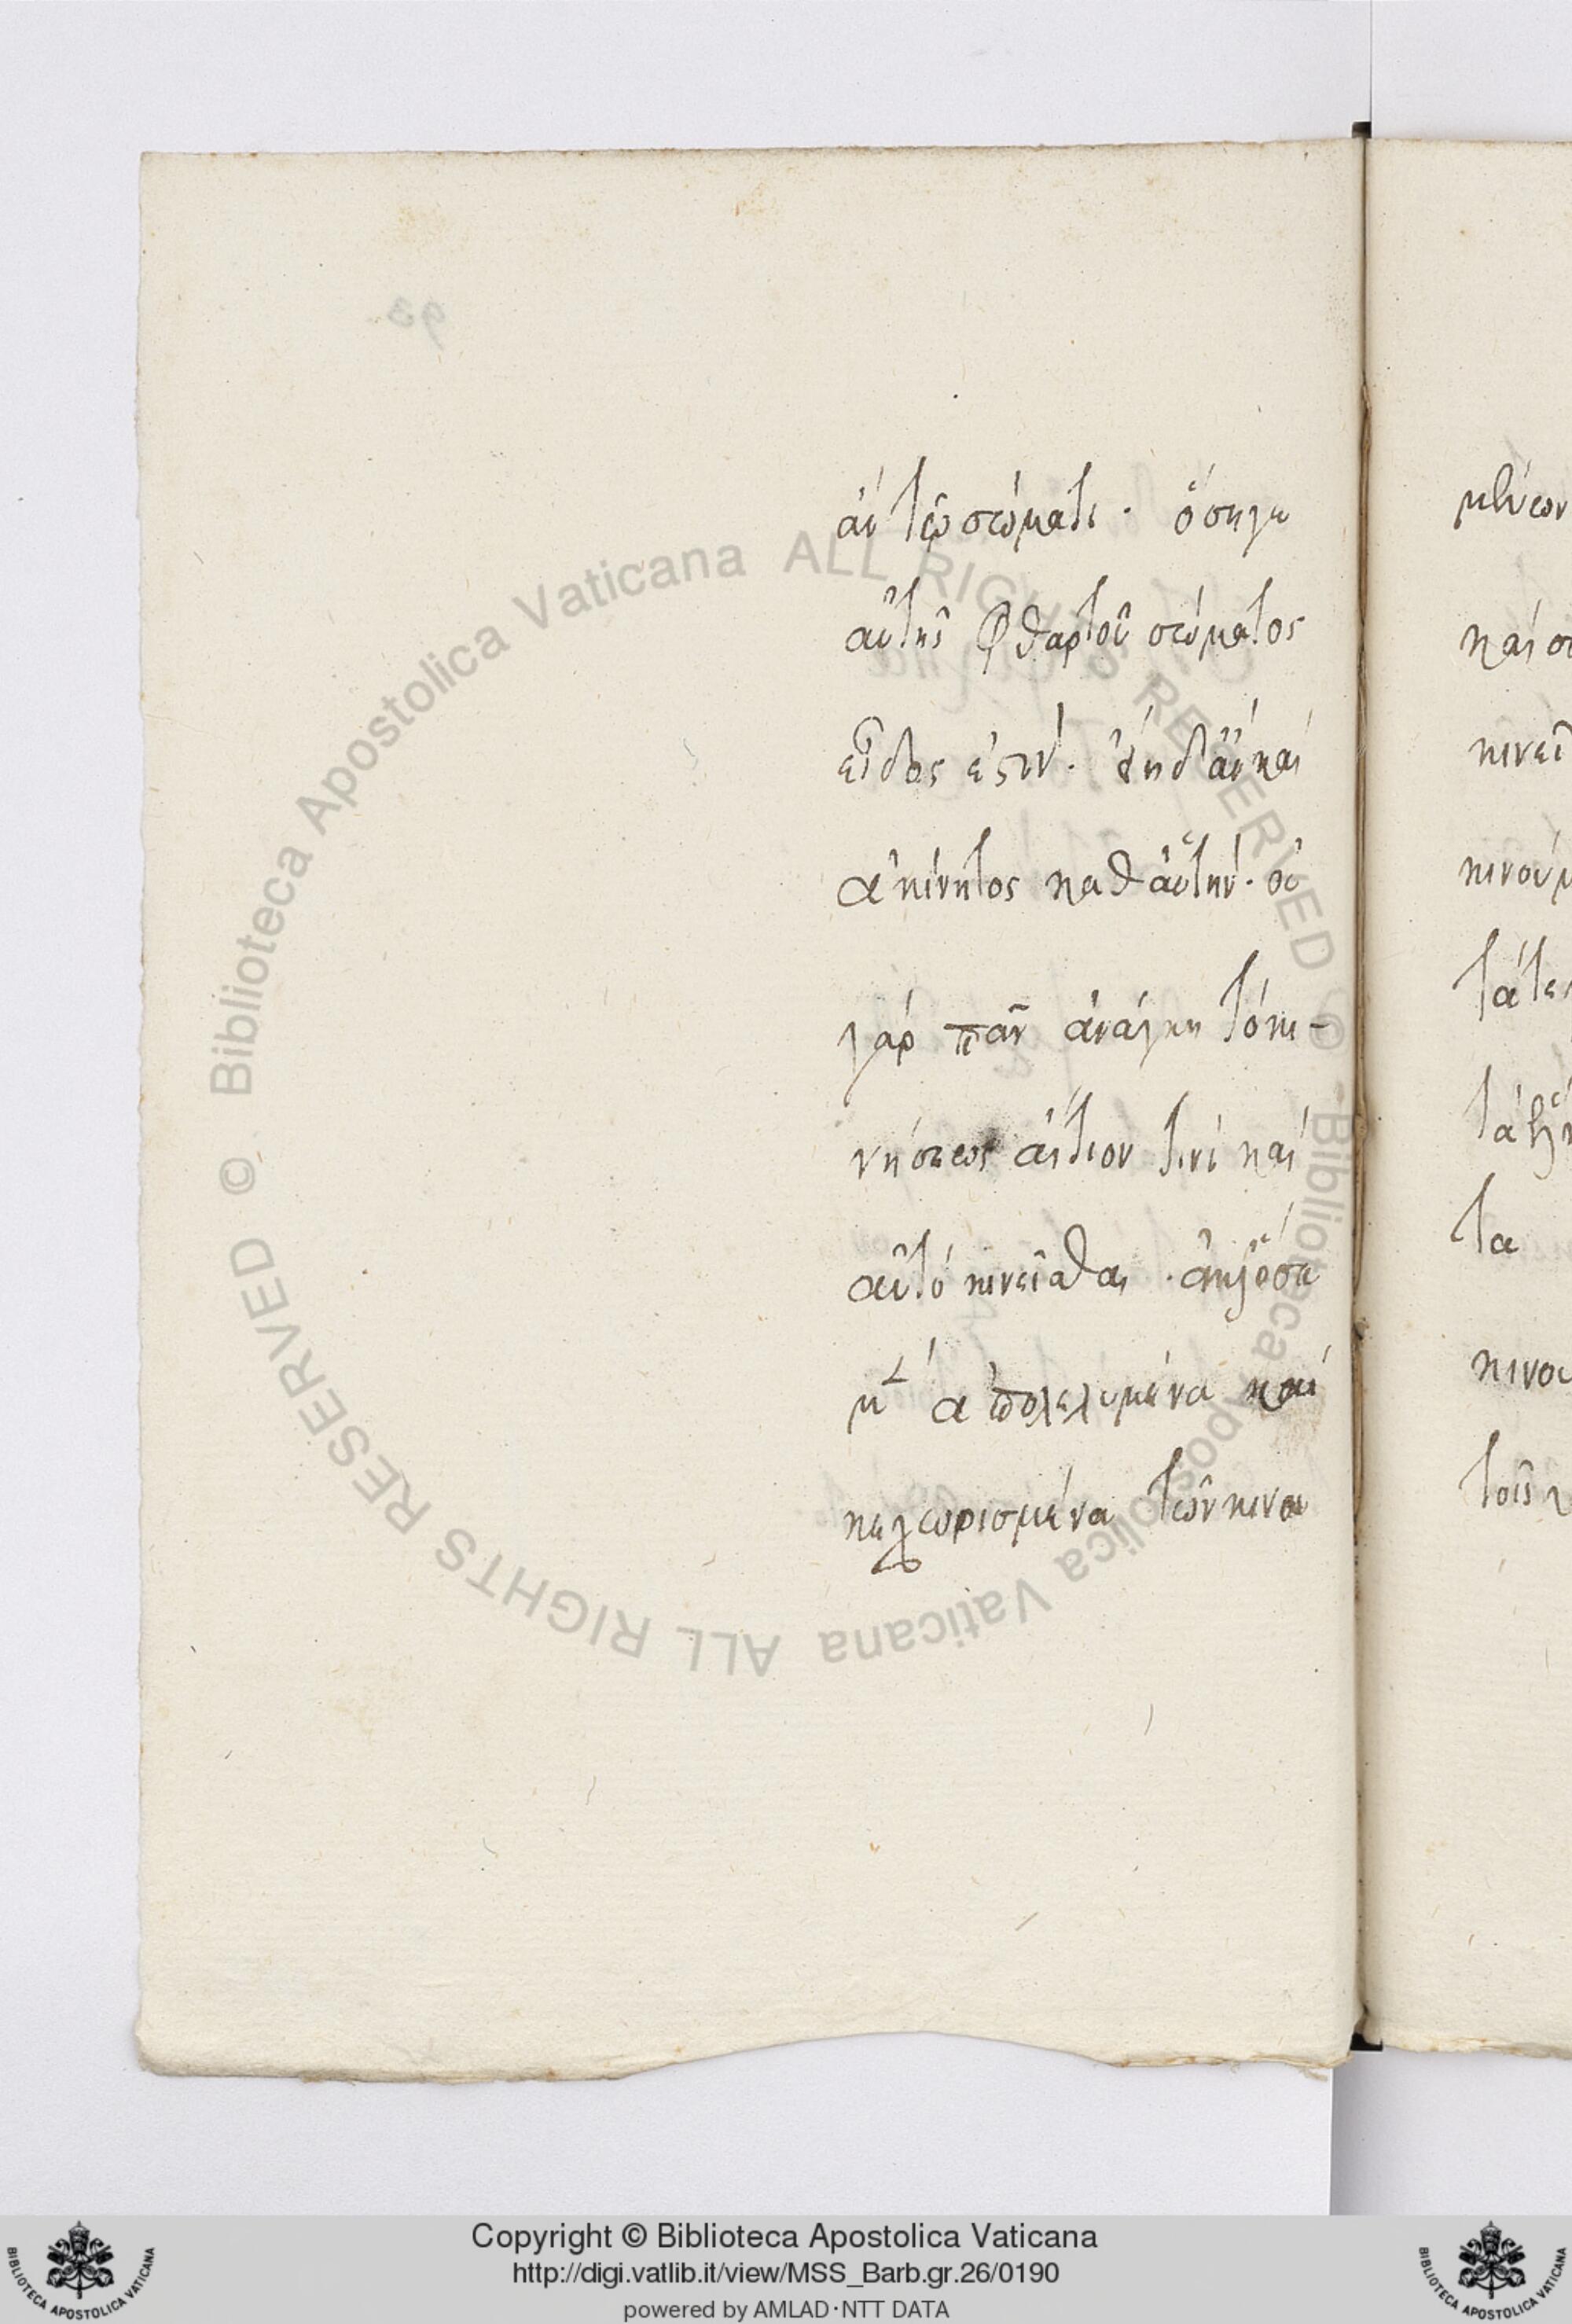 ἂν τῷ σώματι · ὅση γε
αὐτῆς φθαρτοῦ σώματος
εἶδος ἐστίν · εἴη δ' ἂν καὶ
ἀκίνητος καθ' αὑτήν · οὐ
γὰρ πᾶν ἀνάγκη τὸ κι-
νήσεως αἴτιον τινὶ καὶ
αὐτὸ κινεῖσθαι · ὅσα
μὲν ἀπολελυμένα καὶ
κεχωρισμένα τῶν κινου
93
© Biblioteca Apostolica Vaticana ALL RIGHTS RESERVED © Biblioteca Apostolica Vaticana ALL RIGHTS RESERVED
Copyright © Biblioteca Apostolica Vaticana
http://digi.vatlib.it/view/MSS_Barb.gr.26/0190
powered by AMLAD·NTT DATA
BIBLIOTECA APOSTOLICA VATICANA
BIBLIOTECA APOSTOLICA VATICANA